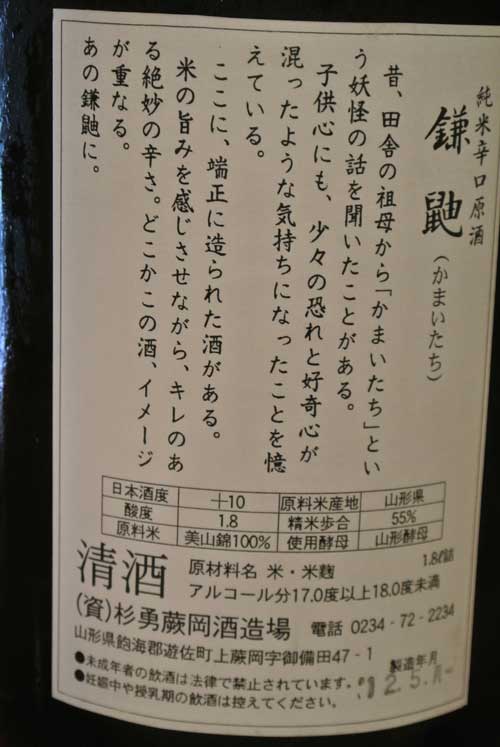 純米辛口原酒
鎌鼬
(かまいたち)
昔、田舎の祖母から「かまいたち」とい
う妖怪の話を聞いたことがある。
子供心にも、少々の恐れと好奇心が
混ったような気持ちになったことを憶
えている。
ここに、端正に造られた酒がある。
米の旨みを感じさせながら、キレのあ
る絶妙の辛さ。どこかこの酒、イメージ
が重なる。
あの鎌鼬に。
日本酒度 +10 原料米産地 山形県
酸度 1.8 精米歩合 55%
原料米 美山錦100% 使用酵母 山形酵母
清酒
1.8ℓ詰
原材料名 米・米麹
アルコール分17.0度以上18.0度未満
(資)杉勇蕨岡酒造場 電話 0234-72-2234
山形県飽海郡遊佐町上蕨岡字御備田47-1
製造年月
●未成年者の飲酒は法律で禁止されています。
●妊娠中や授乳期の飲酒は控えてください。